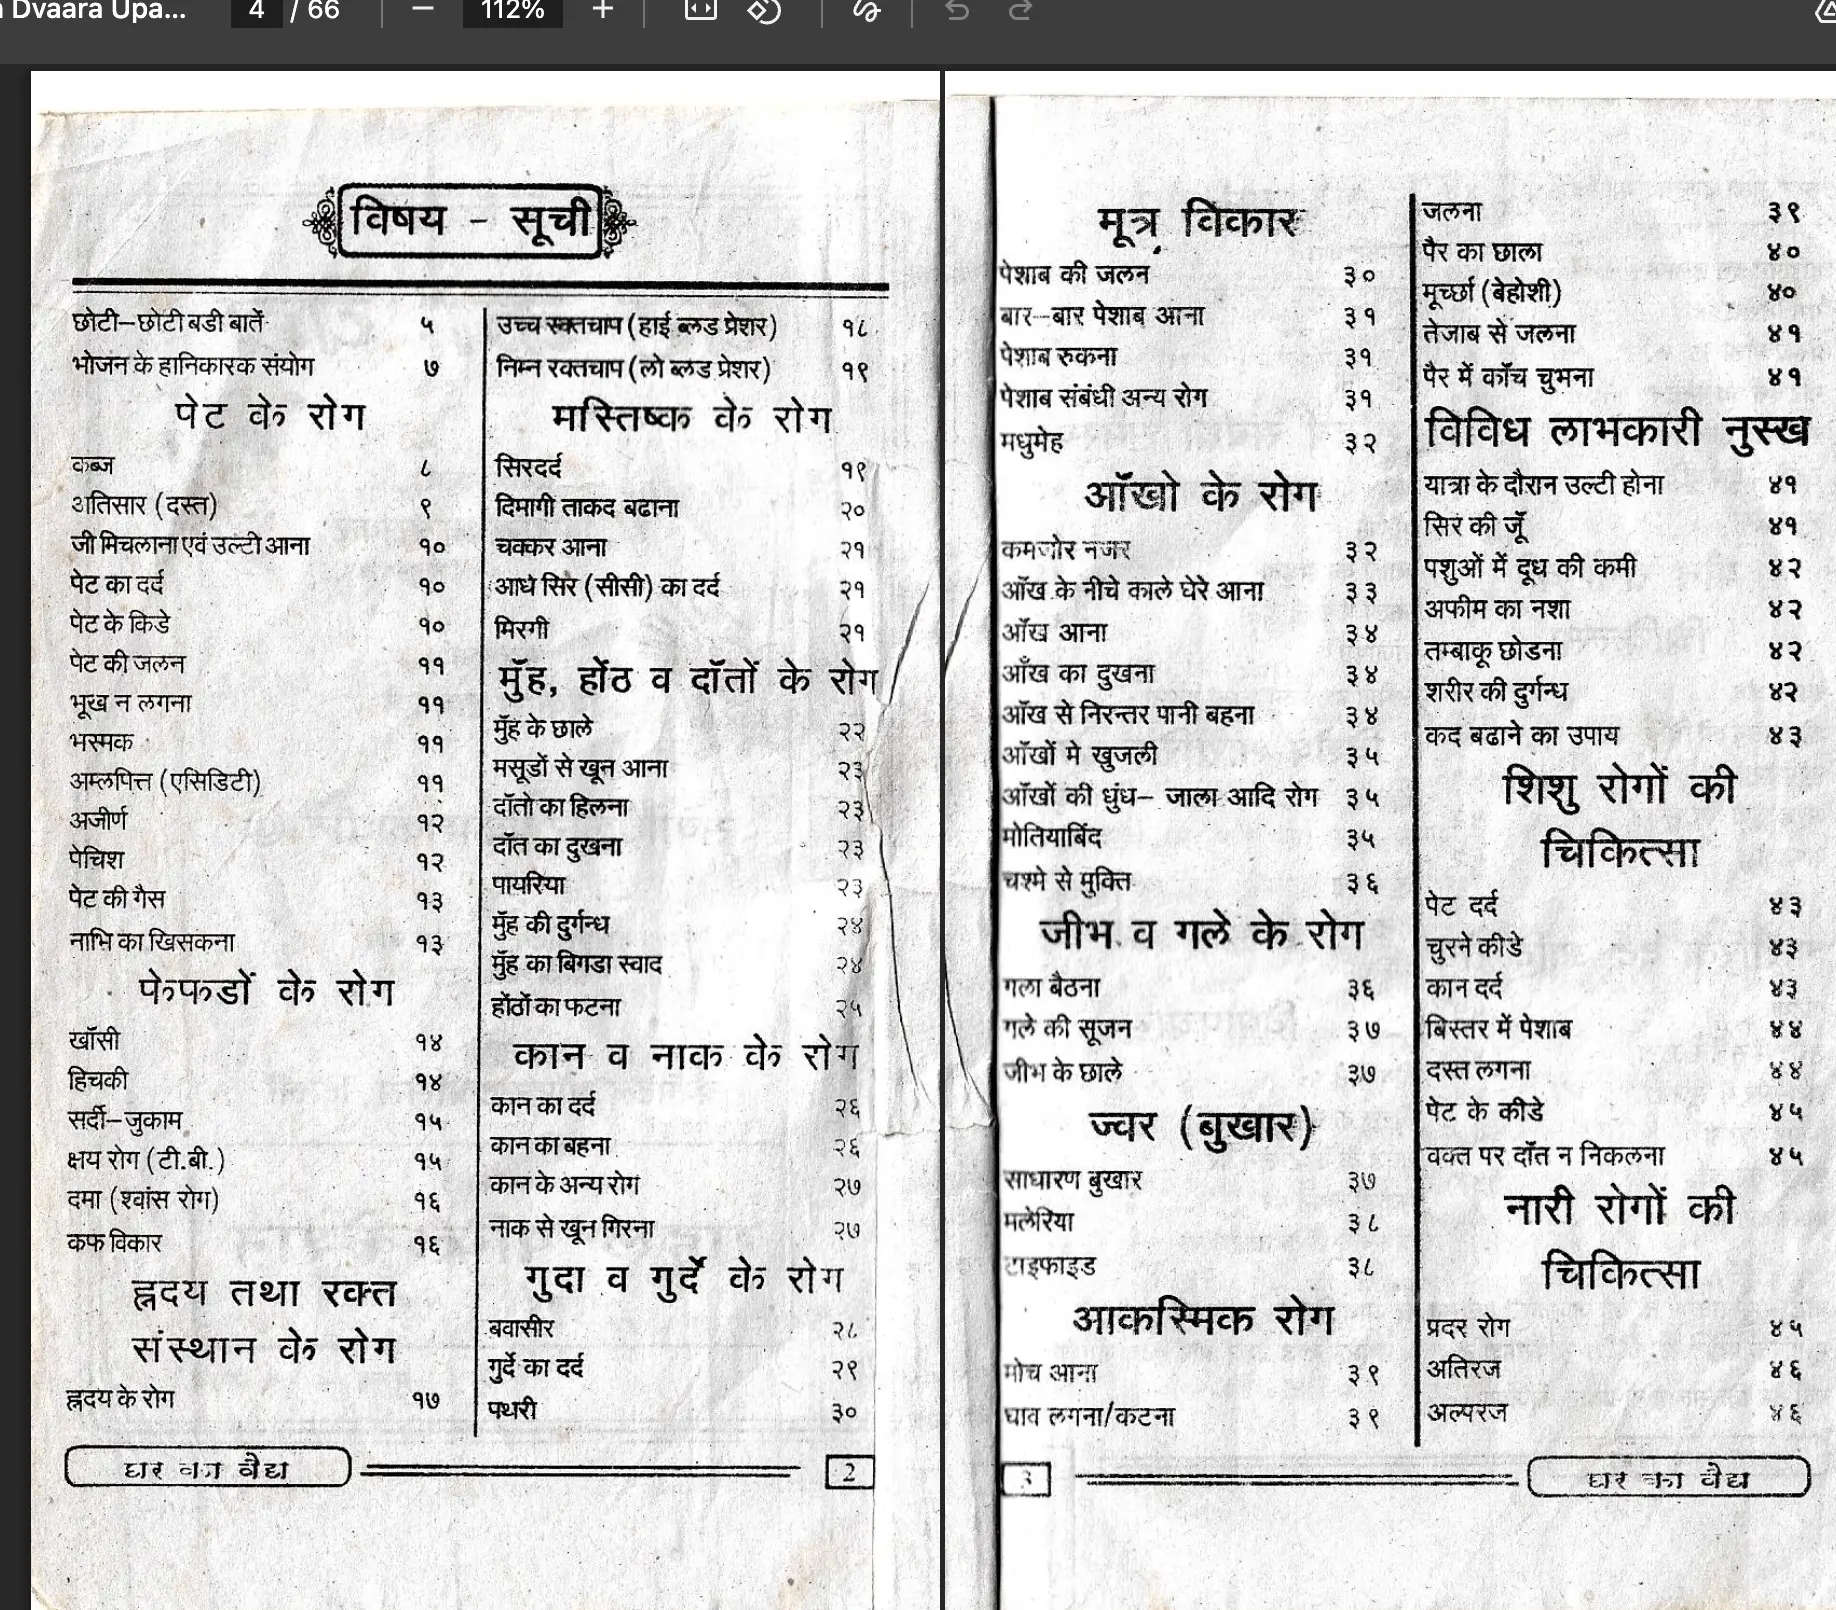 Dvaara Upa... 4 / 66 112%
विषय - सूची
छोटी-छोटी बडी बातें ५
भोजन के हानिकारक संयोग ७
पेट के रोग
कब्ज ८
अतिसार (दस्त) ९
जी मिचलाना एवं उल्टी आना १०
पेट का दर्द १०
पेट के किडे १०
पेट की जलन ११
भूख न लगना ११
भस्मक ११
अम्लपित्त (एसिडिटी) ११
अजीर्ण १२
पेचिश १२
पेट की गैस १३
नाभि का खिसकना १३
फेफडों के रोग
खॉसी १४
हिचकी १४
सर्दी-जुकाम १५
क्षय रोग (टी.बी.) १५
दमा (श्वांस रोग) १६
कफ विकार १६
ह्रदय तथा रक्त
संस्थान के रोग
ह्रदय के रोग १७
उच्च रक्तचाप (हाई ब्लड प्रेशर) १८
निम्न रक्तचाप (लो ब्लड प्रेशर) १९
मस्तिष्क के रोग
सिरदर्द १९
दिमागी ताकद बढाना २०
चक्कर आना २१
आधे सिर (सीसी) का दर्द २१
मिरगी २१
मुॅंह, होंठ व दॉतों के रोग
मुॅंह के छाले २२
मसूडों से खून आना २३
दॉतो का हिलना २३
दॉत का दुखना २३
पायरिया २३
मुॅंह की दुर्गन्ध २४
मुॅंह का बिगडा स्वाद २४
होंठों का फटना २५
कान व नाक के रोग
कान का दर्द २६
कान का बहना २६
कान के अन्य रोग २७
नाक से खून गिरना २७
गुदा व गुर्दे के रोग
बवासीर २८
गुर्दे का दर्द २९
पथरी ३०
घर का वैद्य 2
मूत्र विकार
पेशाब की जलन ३०
बार-बार पेशाब आना ३१
पेशाब रुकना ३१
पेशाब संबंधी अन्य रोग ३१
मधुमेह ३२
ऑंखो के रोग
कमजोर नजर ३२
ऑंख के नीचे काले घेरे आना ३३
ऑंख आना ३४
ऑंख का दुखना ३४
ऑंख से निरन्तर पानी बहना ३४
ऑंखों मे खुजली ३५
ऑंखों की धुंध- जाला आदि रोग ३५
मोतियाबिंद ३५
चश्मे से मुक्ति ३६
जीभ व गले के रोग
गला बैठना ३६
गले की सूजन ३७
जीभ के छाले ३७
ज्वर (बुखार)
साधारण बुखार ३७
मलेरिया ३८
टाइफाइड ३८
आकस्मिक रोग
मोच आना ३९
घाव लगना/कटना ३९
जलना ३९
पैर का छाला ४०
मूर्च्छा (बेहोशी) ४०
तेजाब से जलना ४१
पैर में कॉंच चुभना ४१
विविध लाभकारी नुस्ख
यात्रा के दौरान उल्टी होना ४१
सिर की जूॅं ४१
पशुओं में दूध की कमी ४२
अफीम का नशा ४२
तम्बाकू छोडना ४२
शरीर की दुर्गन्ध ४२
कद बढाने का उपाय ४३
शिशु रोगों की
चिकित्सा
पेट दर्द ४३
चुरने कीडे ४३
कान दर्द ४३
बिस्तर में पेशाब ४४
दस्त लगना ४४
पेट के कीडे ४५
वक्त पर दॉत न निकलना ४५
नारी रोगों की
चिकित्सा
प्रदर रोग ४५
अतिरज ४६
अल्परज ४६
3 घर का वैद्य